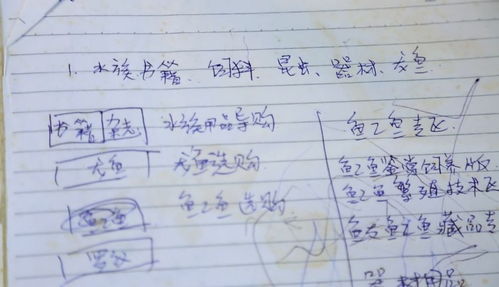 1. 水族书籍、饲料、昆虫、器材、龙鱼
书籍 杂志 水族用品导购
龙鱼 龙鱼选购
鱼乙鱼 鱼乙鱼选购
鱼乙鱼专区
鱼乙鱼鉴赏饲养版
鱼乙鱼繁殖技术区
鱼友鱼乙鱼藏品专
器材用品